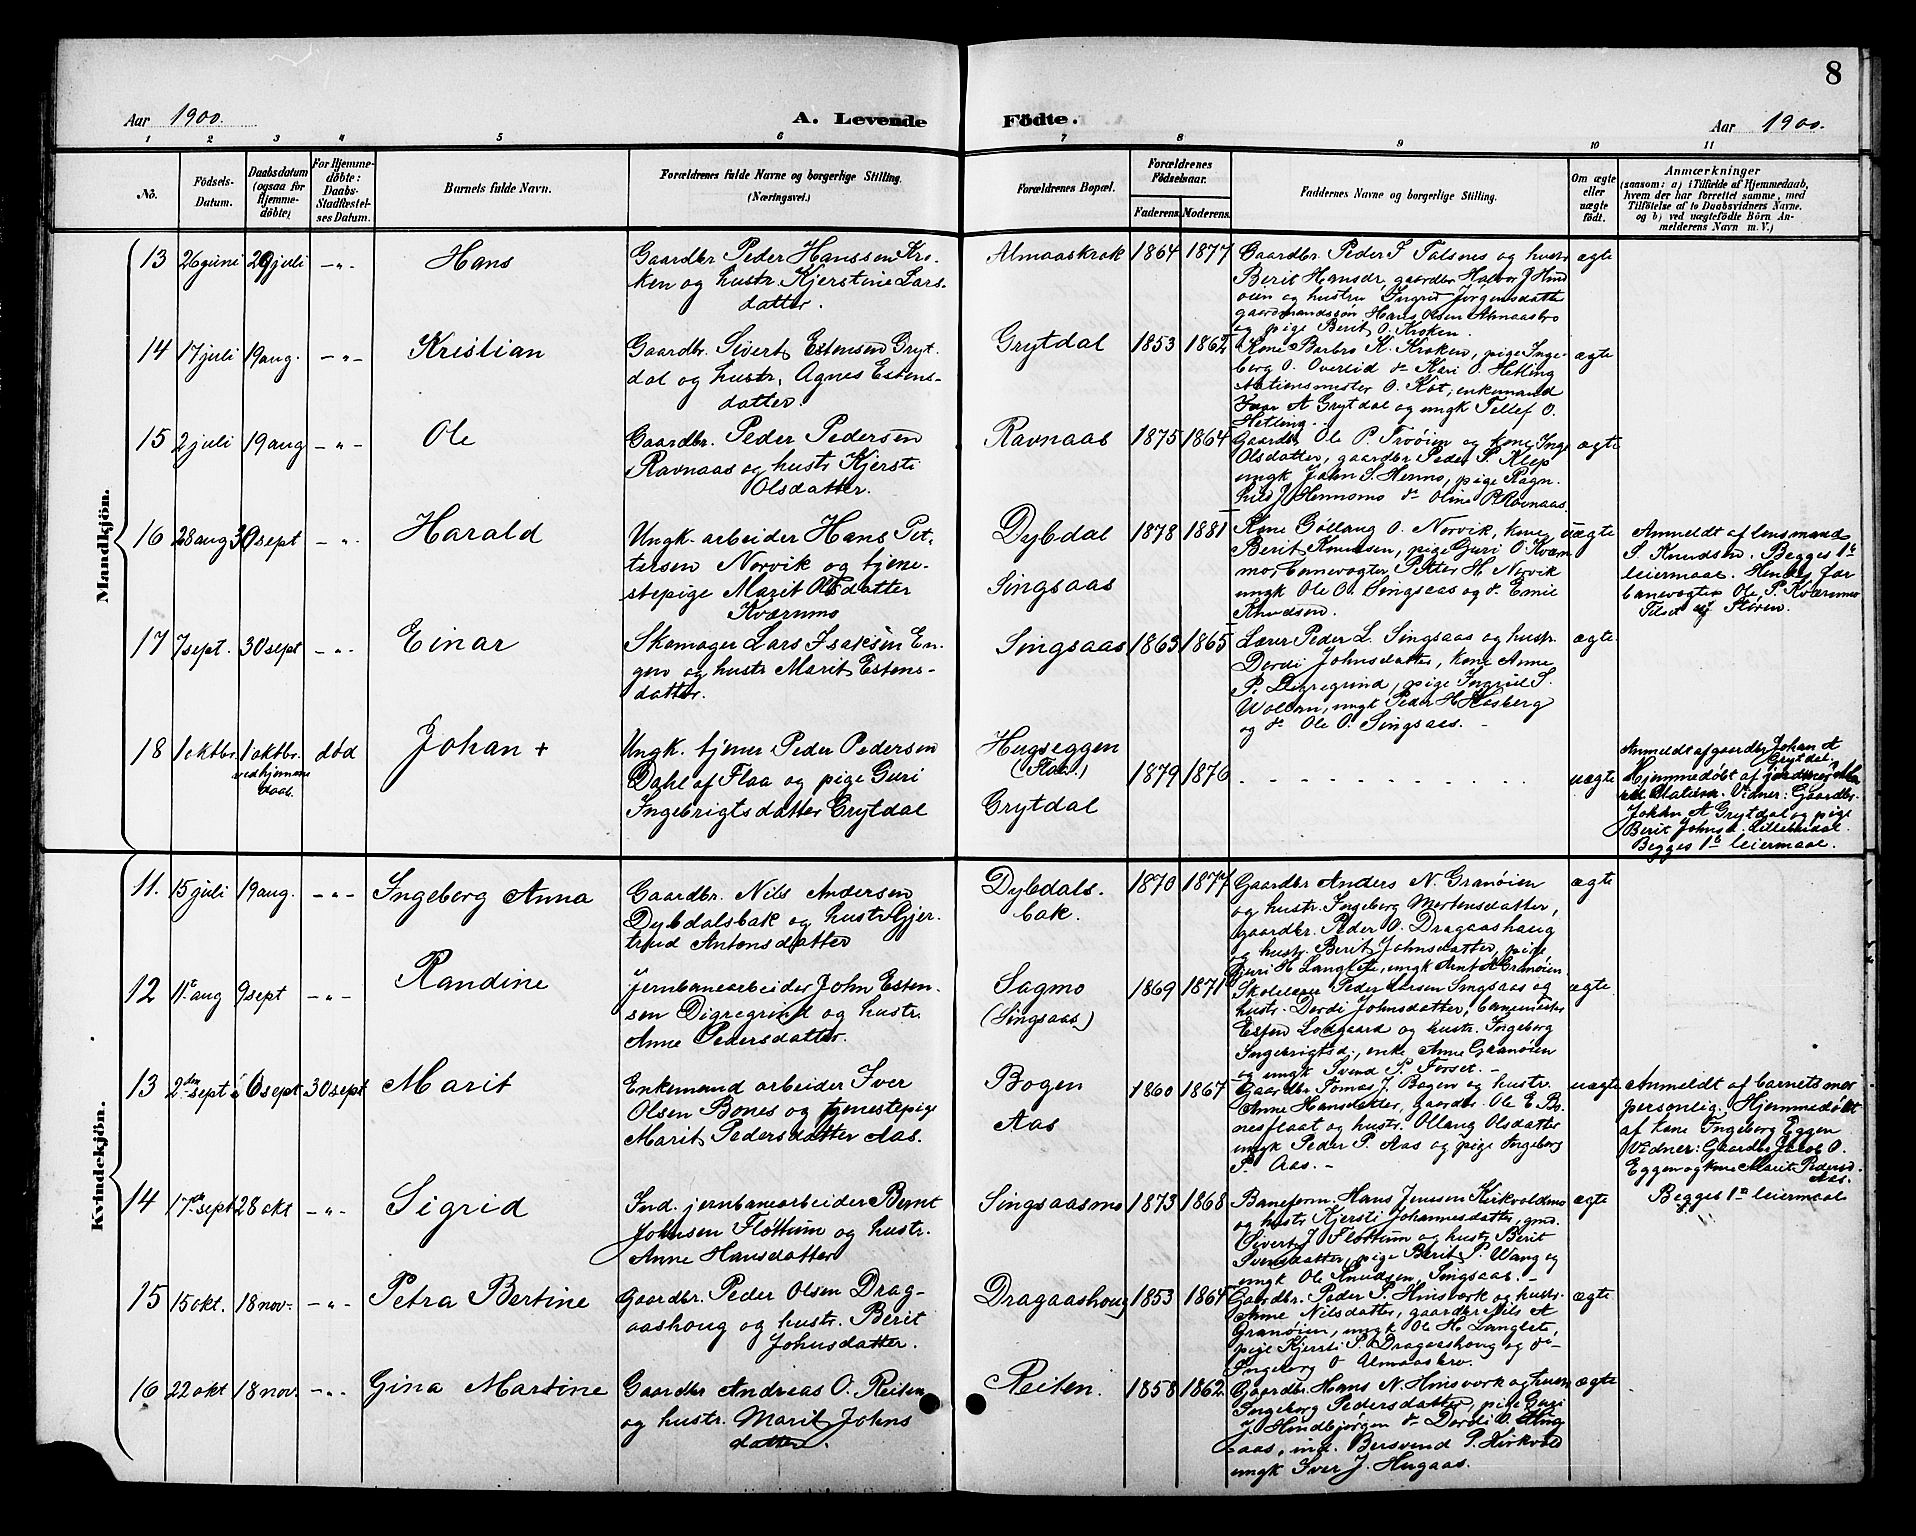 8
Aar 1900.
A. Levende Födte.
Aar 1900.
1 2 3 4 5 6 7 8 9 10 11
No.
Födsels-
Datum.
Daabsdatum
(ogsaa for
Hjemme-
døbte)
For Hjemme-
døbte:
Daabs-
Stadfæstel-
ses Datum.
Barnets fulde Navn.
Forældrenes fulde Navne og borgerlige Stilling.
(Næringsvei.)
Forældrenes Bopæl.
Forældrenes
Födselsaar.
Faderens. Moderens.
Faddernes Navne og borgerlige Stilling.
Om ægte
eller
uægte
födt.
Anmærkninger
(saasom: a) i Tilfælde af Hjemmedaab,
hvem der har forrettet samme, med
Tilföielse af to Daabsvidners Navne,
og b) ved uægtefödte Börn An-
melderens Navn m. V.)
Mandkjön.
13 26 juni 29 juli -"- Hans
Gaardbr Peder Hanssen Kro-
ken og hustr. Kjerstine Lars-
datter.
Almaaskrok 1864 1877
Gaardbr. Peder J Talsnes og hustr
Berit Hansdr, gaardbr Halvor J Hind
öien og hustru Ingrid Jørgensdatte
gaardmandssön Hans Olsen Almaasbro
og pige Berit O. Kroken.
ægte
14 17 juli 19 aug. -"- Kristian
Gaardbr. Sivert Estensen Gryt-
dal og hustr. Agnes Estens-
datter.
Grytdal 1853 1862
Kone Barbro K. Kroken, pige Inge-
berg O. Overeid do Kari O. Hetling
Stationsmester O. Kot, enkemand
A Grytdal og ungk Tellef O.
Hetling.
ægte
15 2 juli 19 aug -"- Ole
Gaardbr. Peder Pedersen
Ravnaas og hustr Kjersti
Olsdatter.
Ravnaas 1875 1864
Gaardbr Ole P. Troöien og kone Inge
Olsdatter, gaardbr Peder S. Klep
ungk John S. Henmo, pige Ragn-
hild J Hennomo do Oline P. Rovnaas
ægte
16 28 aug 30 sept -"- Harald
Ungk. arbeider Hans Pet-
tersen Norvik og tjene-
stepige Marit Olsdatter
Kværnmo
Dybdal
Singsaas
1878 1881
Kone Göllaug O. Norvik, kone
Berit Knudsen, pige Guri O. Kværn
mo, banevogter Petter H. Norvik
ungk Ole O. Singsaas og do Emil
Knudsen.
uægte
Anmeldt af lensmand
S. Knudsen. Begges 1ste
leiermaal. Hendes far
banevogter Ole P. Kværnmo
Tilset og Stören.
17 7 sept. 30 sept -"- Einar
Skomager Lars Isaksen En-
gen og hustr Marit Estens-
datter.
Singsaas 1863 1865
Lærer Peder L. Singsaas og hustr.
Dordi Johnsdatter, kone Anne
P. Digregrind, pige Ingrid S.
Wollan, ungk Peder H Kosberg
og do Ole O. Singsaas. -
ægte
18 1 oktbr. 1 oktbr.
ved hjemme
daab.
död Johan +
Ungk. tjener Peder Pedersen
Dahl af Flaa og pige Guri
Ingebrigtsdatter Grytdal
Hugseggen
(Flaa)
Grytdal
1879 1876
uægte
Anmeldt af gaardbr Johan A
Grytdal.
Hjemmedöbt af jordmor
Vidner: Gaardbr.
Johan A Grytdal og pige
Berit Johnsd. Lillebudal.
Begges 1ste leiermaal.
Kvindekjön.
11. 15 juli 19 aug. -"- Ingeborg Anna
Gaardbr. Nils Andersen
Dybdalsbak og hustr Gjer-
trud Antonsdatter
Dybdals-
bak.
1870 1877
Gaardbr Anders N. Granöien
og hustr. Ingeborg Mortensdatter,
gaardbr. Peder O. Dragaashaug
og hustr. Berit Johnsdatter, pige
Guri H Langlete, ungk Arnt A Granöien
ægte
12 11te aug 9 sept -"- Randine
Jernbanearbeider John Esten-
sen Digregrind og hustr.
Anne Pedersdatter.
Sagmo
(Singsaas)
1869 1871
Skolelærer Peder Larsen Singsaas og
hustr. Dordi Johnsdatter, banemester
Esten Lodgaard og hustr. Ingeborg
Ingebrigtsd., enke Anne Granöien
og ungk Svend P. Forset. -
ægte
13 2den sept 6 sept 30 sept Marit
Enkemand arbeider Iver
Olsen Bones og tjenestepige
Marit Pedersdatter Aas.
Bogen
Aas
1860 1867
Gaardbr Tomas J. Bogen og hustr.
Anne Hansdatter, gaardbr. Ole E Bo-
nesflaat og hustr. Ollaug Olsdatter
ungk Peder P. Aas og pige Ingeborg
P. Aas. -
uægte
Anmeldt af barnets mor
personlig. Hjemmedöbt
af kone Ingeborg Eggen
Vidner: Gaardbr Jacob O.
Eggen og kone Marit Pedersd.
Aas.
Begges 1ste leiermaal
14 17de sept 28 okt -"- Sigrid
Ind. jernbanearbeider Bernt
Johnsen Flöttum og hustr.
Anne Hansdatter
Singsaasmo 1873 1868
Baneform. Hans Jensen Kirkvoldmo
og hustr Kjersti Johannesdatter, gmd.
Sivert J Flöttum og hustr Berit
Svensdatter, pige Berit P. Wang og
ungk Ole Knudsen Singsaas. -
ægte
15 15 okt. 18 nov. -"- Petra Bertine
Gaardbr. Peder Olsen Drag-
aashoug og hustr. Berit
Johnsdatter.
Dragaashoug 1853 1864
Gaardbr. Peder S. Hinsverk og hustr.
Anne Nilsdatter, gaardbr Nils A
Granöien, ungk Ole H. Langlete,
pige Kjersti P. Dragaashoug og di-
Ingeborg O Almaasbro.
ægte
16 22 okt 18 nov. -"- Gina Martine
Gaardbr Andreas O. Reiten
og hustr. Marit Johns
datter.
Reiten. 1858 1862
Gaardbr. Hans N. Hinsverk og hustr
Ingeborg Pedersdatter, pige Guri
J. Hindbjörgen do Dordi O. Sing
saas, ind. Bersvend P. Kirkvold
ungk Iver J. Hugaas.
ægte